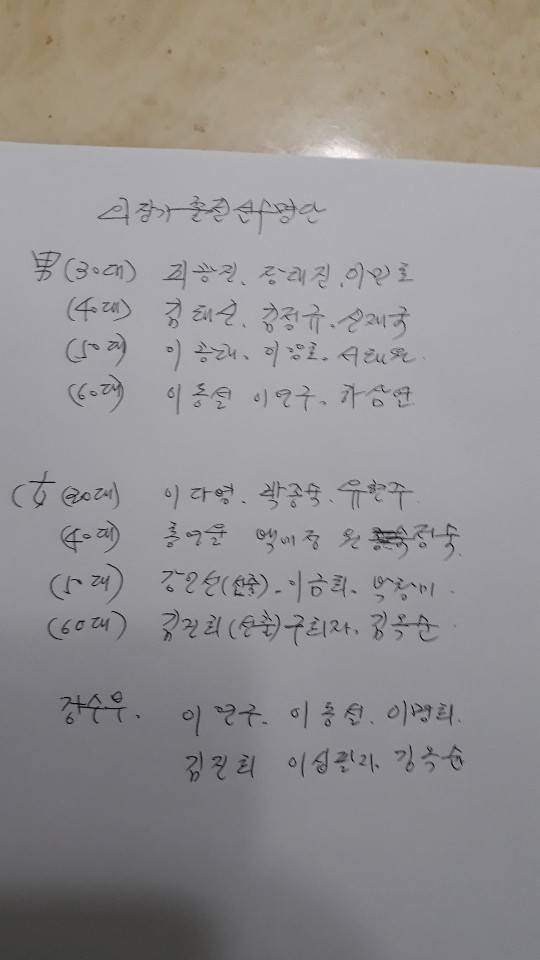 의장기 출전 선수명단
男 (30대) 피광진. 장태진. 이민호
(40대) 김태산. 김정규. 신재국
(50대) 이광태.
(60대) 이동설 이연구. 차삼연
(女 (30대) 이다영. 곽종숙. 유현주
(40대) 백미정 원정숙
(50대) 강인선(선출). 이금희. 박창미.
(60대) 김진희(선출) 구희자. 김옥순.
장수우. 이연구. 이동설. 이명희.
김진희 이십필자. 김옥순